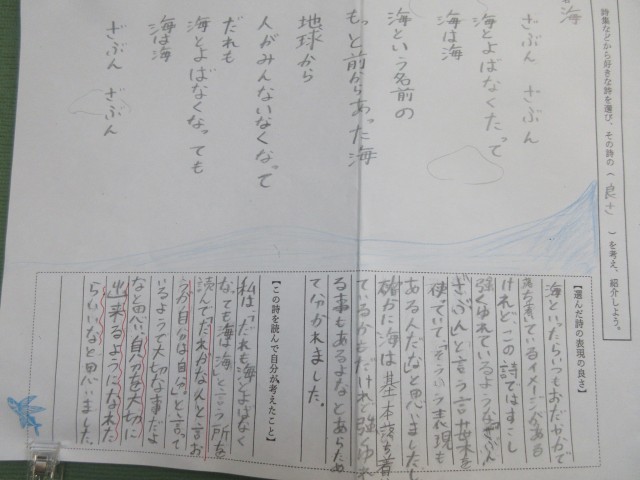 詩集などから好きな詩を選び、その詩の（ 良さ ）を考え、紹介しよう。
海
ざぶん ざぶん
海とよばなくたって
海は海
海という名前の
もっと前からあった海
地球から
人がみんないなくなって
だれも
海とよばなくなっても
海は海
ざぶん ざぶん
【選んだ詩の表現の良さ】
海といったらいつもおだやかで
落ち着いているイメージがある
けれどこの詩ではすこし
強くゆれているような
ざぶんと言う言葉を
使っていて「そういう表現も
あるんだな」と思いましたし
確かに海は基本落ち着
ているかもだけれど強くゆれ
る事もあるよなとあらため
て分かれました。
【この詩を読んで自分が考えたこと】
私は「だれも海とよばなく
なっても海は海」と言う所を
読んで「だれがなんと言お
うが自分は自分。」と言って
いるようで大切な事だよ
なと思い、自分を大切に
出来るようになれた
らいいなと思いました。